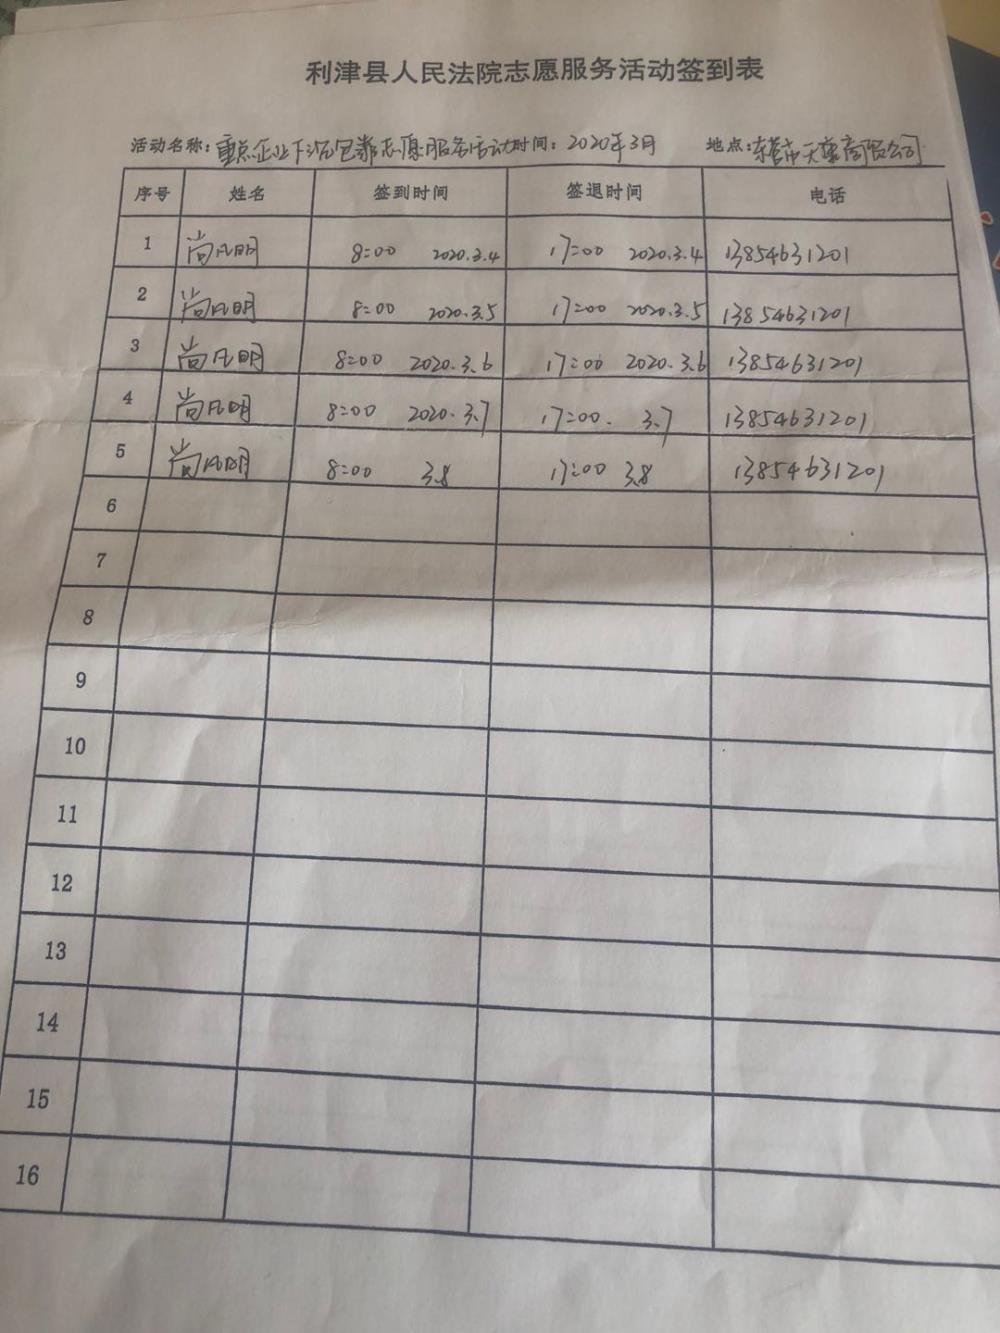 利津县人民法院志愿服务活动签到表
活动名称：重点企业下沉包靠志愿服务活动 时间：2020年3月 地点：东营市天 商贸公司
序号 姓名 签到时间 签退时间 电话
1 尚凡明 8:00 2020.3.4 17:00 2020.3.4 13854631201
2 尚凡明 8:00 2020.3.5 17:00 2020.3.5 13854631201
3 尚凡明 8:00 2020.3.6 17:00 2020.3.6 13854631201
4 尚凡明 8:00 2020.3.7 17:00. 3.7 13854631201
5 尚凡明 8:00 3.8 17:00 3.8 13854631201
6
7
8
9
10
11
12
13
14
15
16